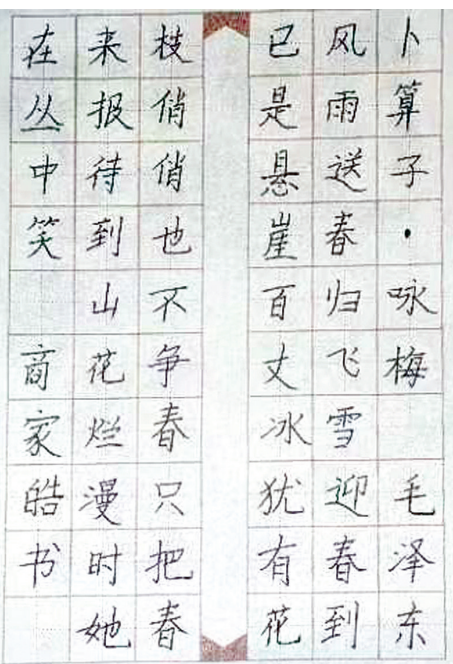 卜算子·咏梅 毛泽东
风雨送春归飞雪迎春到
已是悬崖百丈冰犹有花
枝俏俏也不争春只把春
来报待到山花烂漫时她
在丛中笑 商家皓书